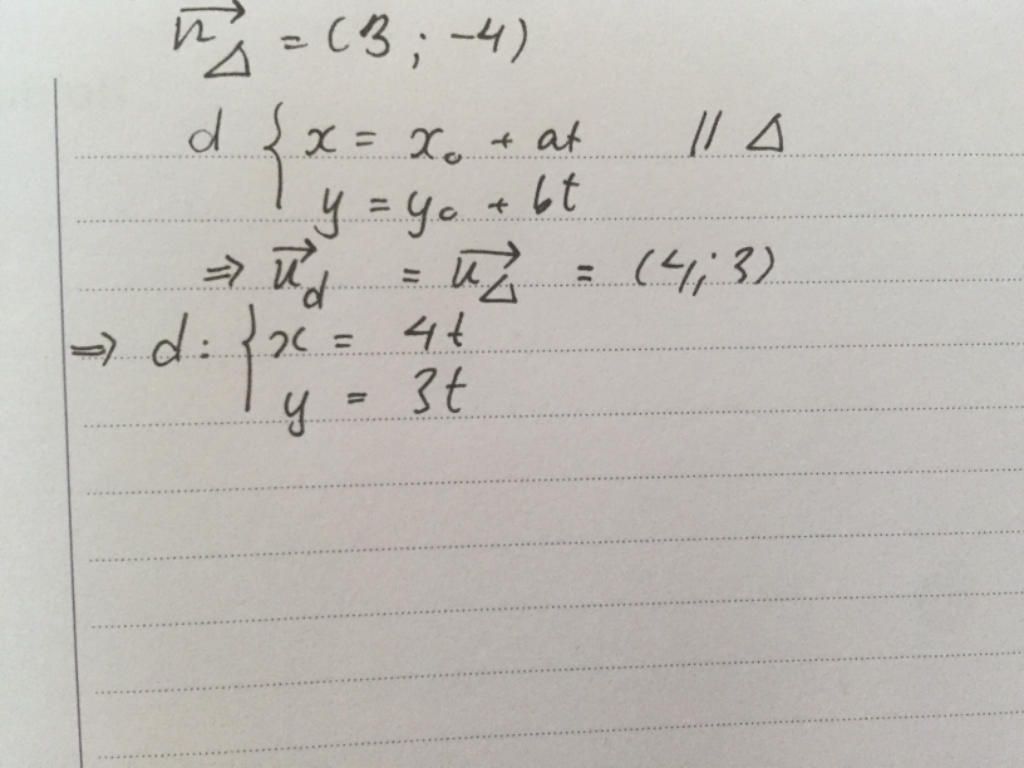 n⃗_Δ = (3 ; -4)
d { x = x₀ + at // Δ
y = y₀ + bt
⇒ u⃗_d = u⃗_Δ = (4; 3)
⇒ d: { x = 4t
y = 3t